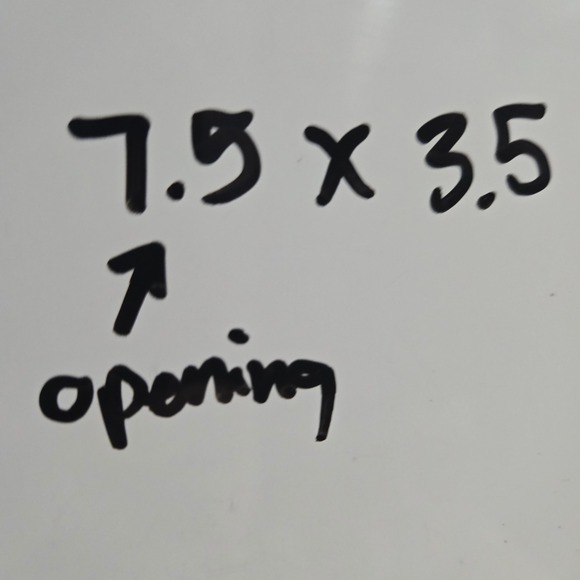 7.5 x 3.5
opening